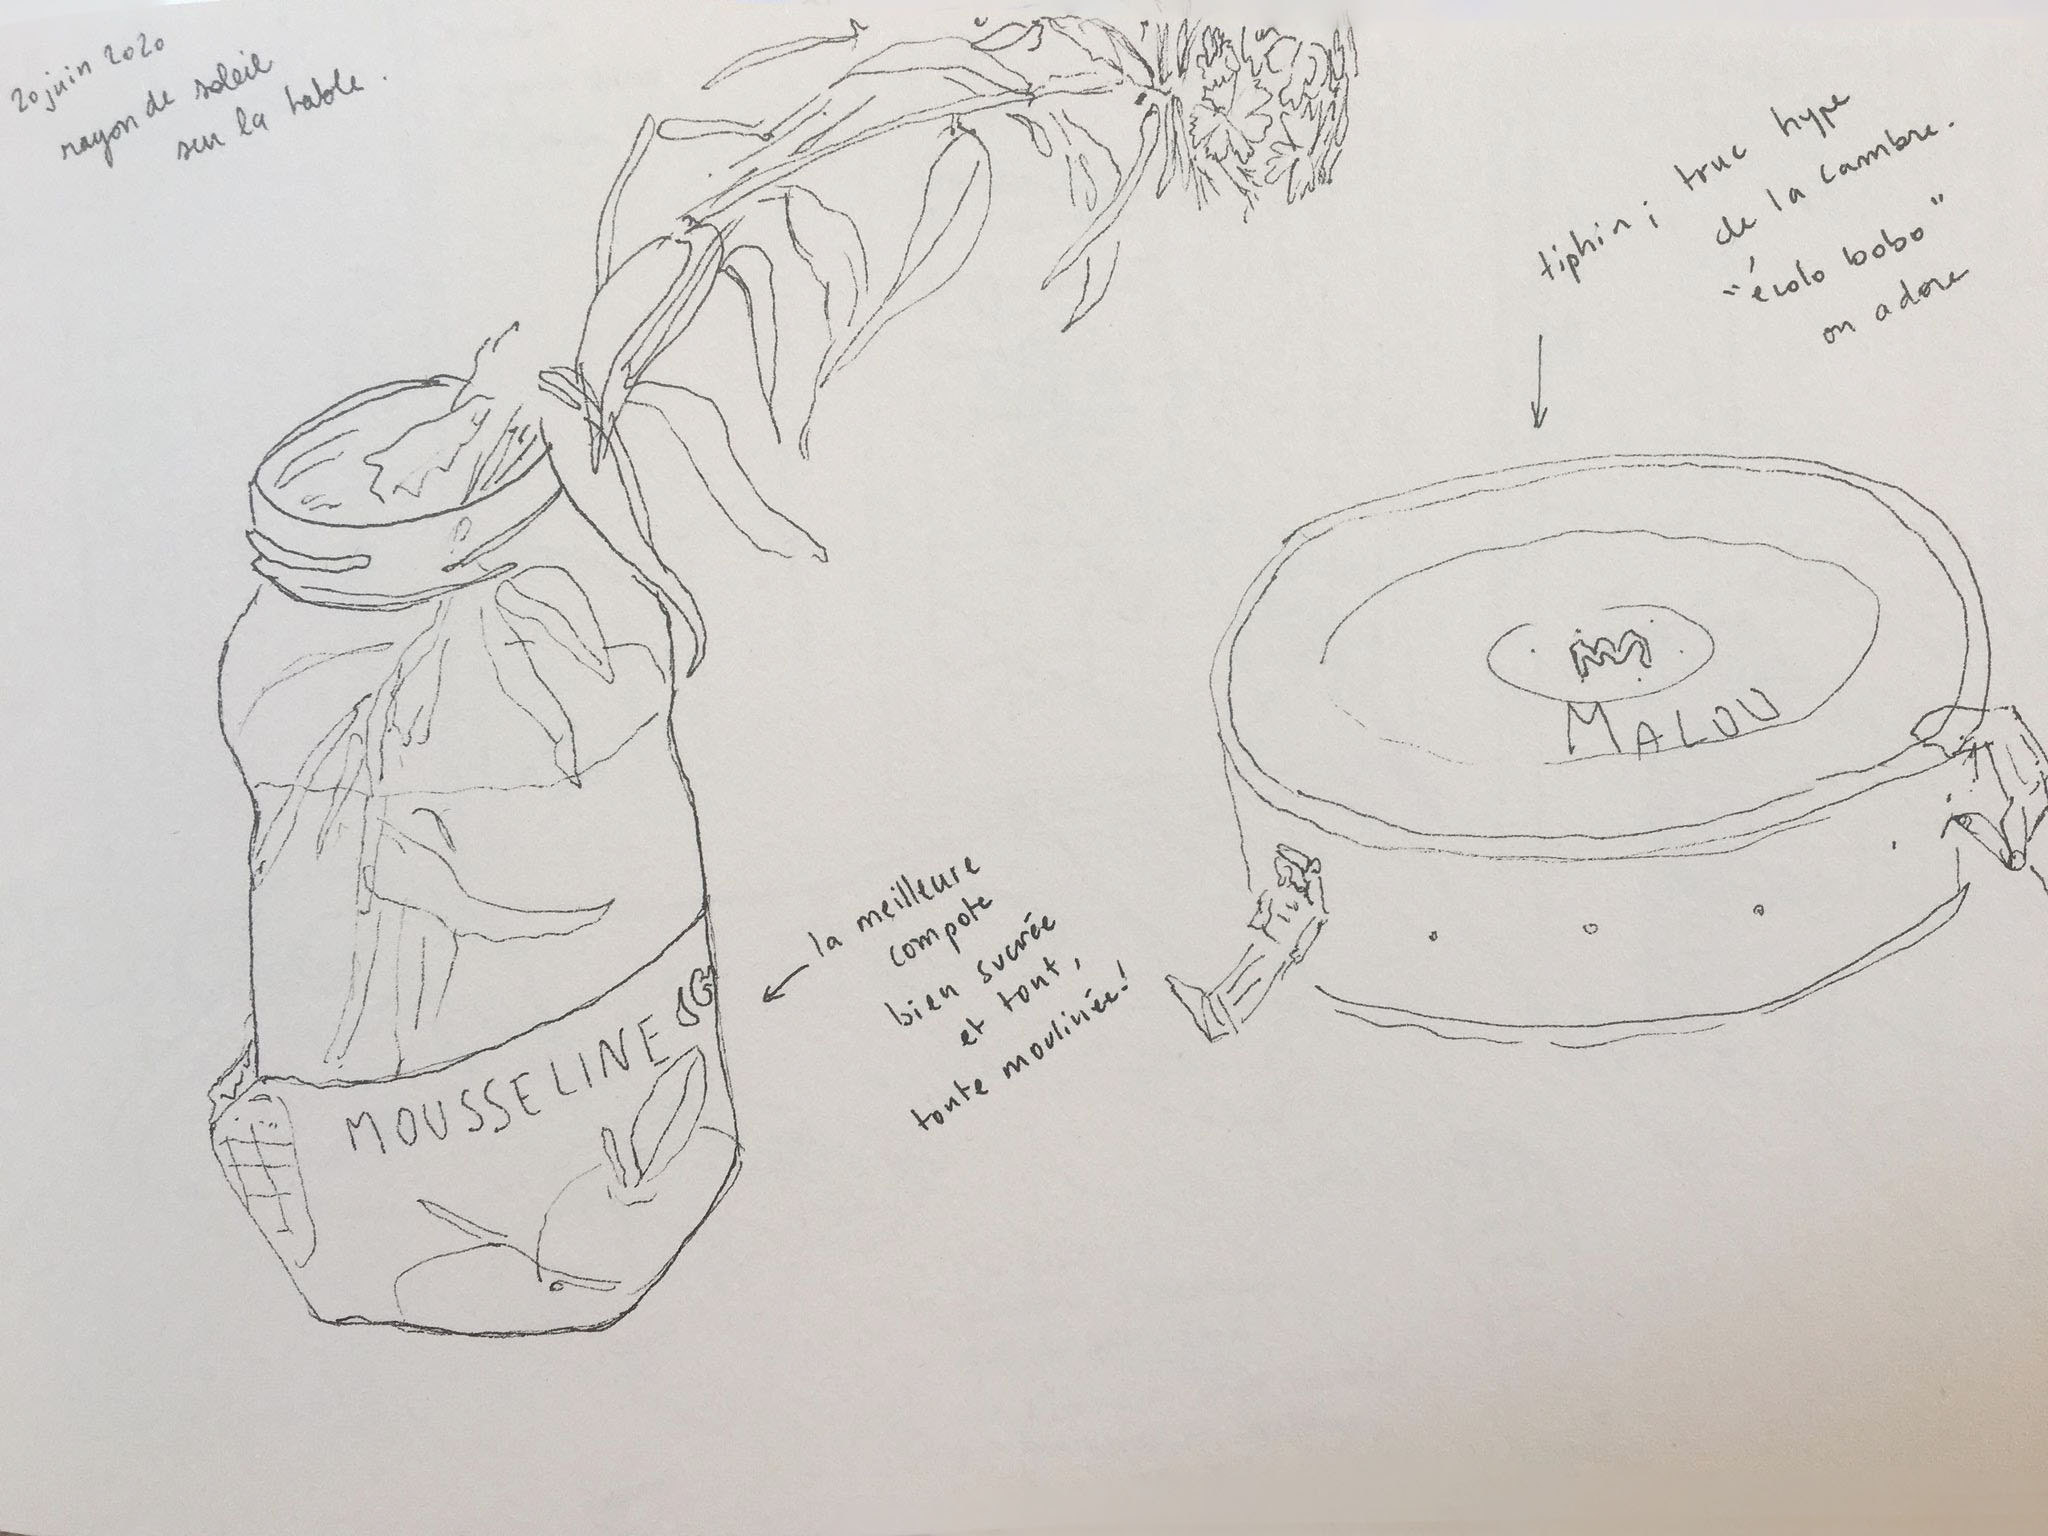 20 juin 2020
rayon de soleil
sur la table.
tiphin ; truc hype
de la cambre.
"écolo bobo"
on adore
MALOU
la meilleure
compote
bien sucrée
et tout,
toute moulinée!
MOUSSELINE